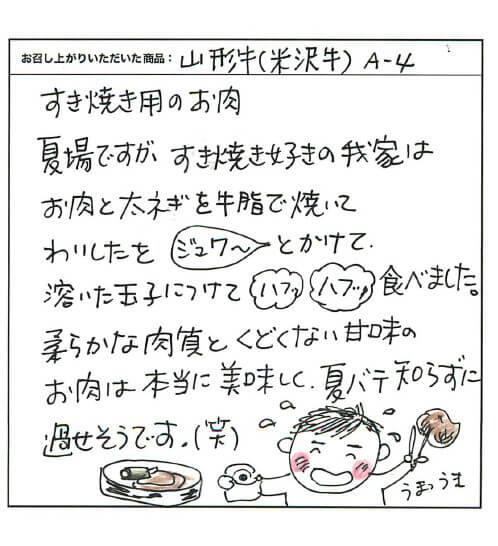 お召し上がりいただいた商品：山形牛(米沢牛) A-4
すき焼き用のお肉
夏場ですが、すき焼き好きの我家は
お肉と太ネギを牛脂で焼いて
わりしたを ジュワ～ とかけて、
溶いた玉子につけて ハフッ ハフッ 食べました。
柔らかな肉質と くどくない甘味の
お肉は本当に美味しく、夏バテ知らずに
過せそうです。(笑)
うまっうま